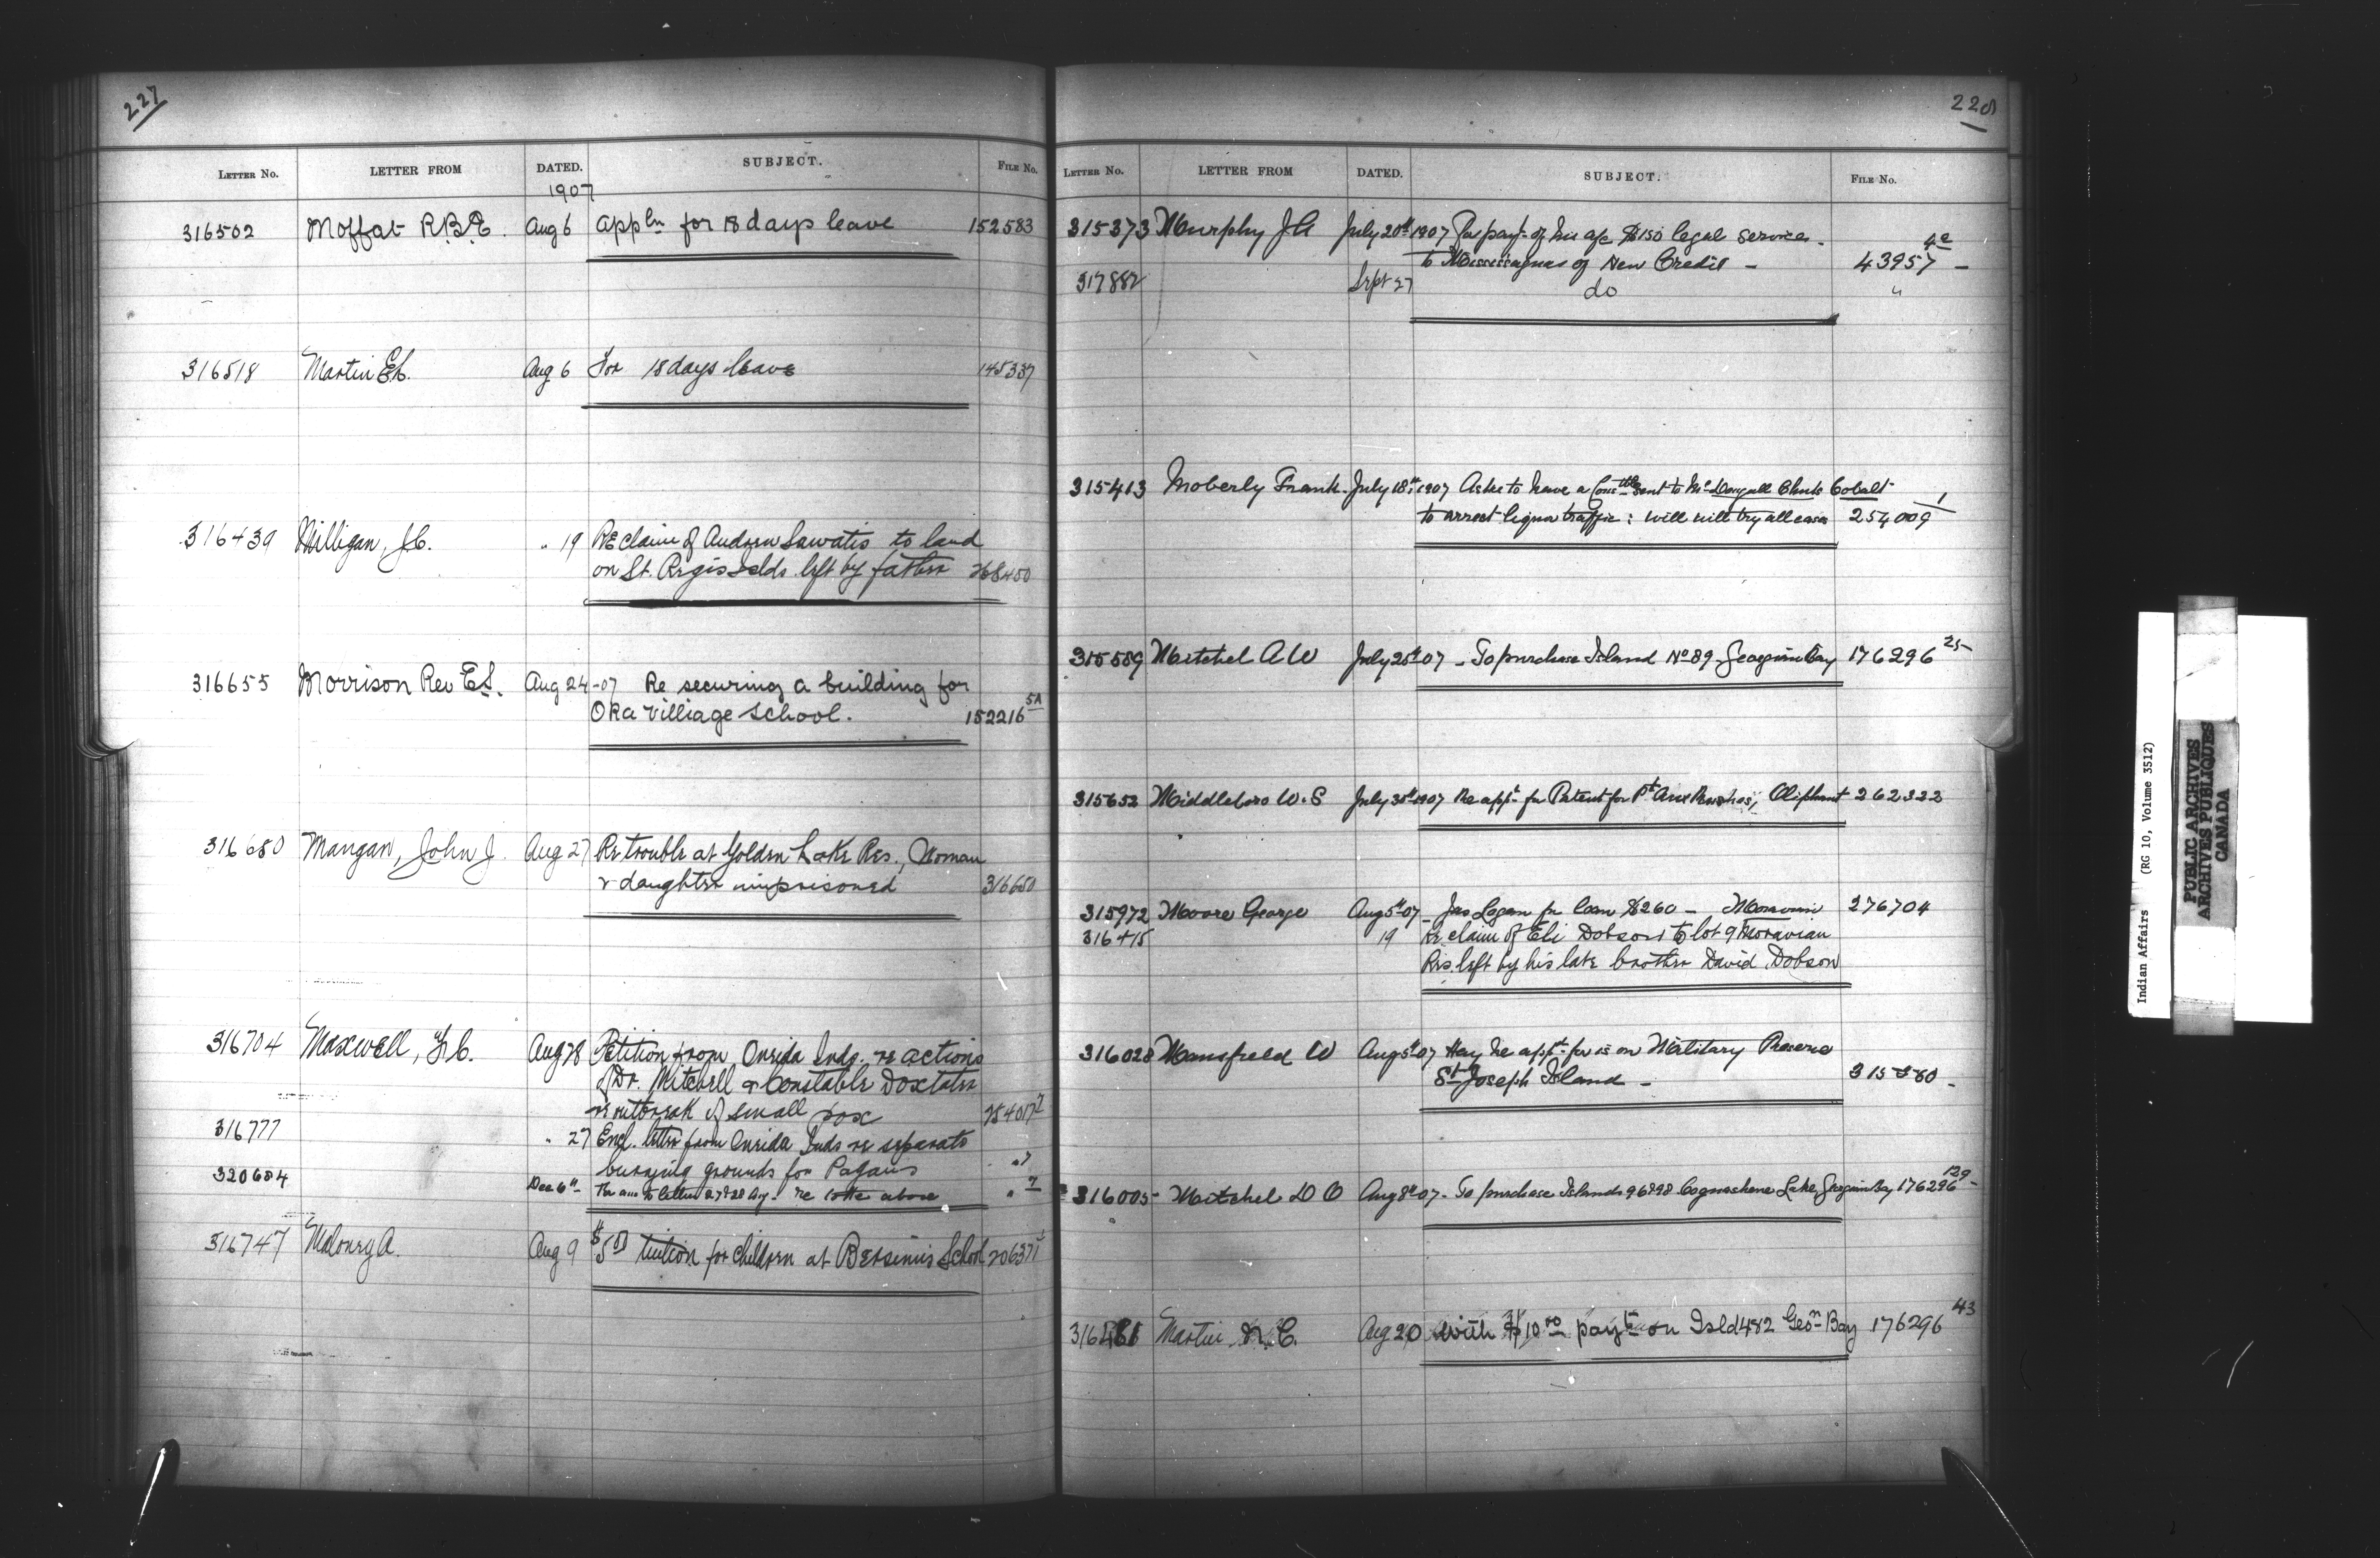 227
LETTER NO. LETTER FROM DATED. SUBJECT. FILE NO.
1907
316502 Moffat R.B.E. Aug 6 appln for 18 days leave 152583
316518 Martin E.L. Aug 6 For 18 days leave 145337
316439 Milligan, J.C. " 19 Re claim of Andrew Sawatis to land
on St. Regis Islds. left by father 268450
316655 Morrison Rev E.S. Aug 24-07 Re securing a building for
Oka Villiage School. 152216 5A
316680 Mangan, John J. Aug 27 Re trouble at Golden Lake Res., Woman
& daughter imprisoned 316680
316704 Maxwell, Aug 28 Petition from Oneida Inds. re actions
of Dr. Mitchell & Constable Doxtater
re outbreak of small pox 254017 7
316777 " 27 Encl. letter from Oneida Inds re separate
burying grounds for Pagans " 7
320684 Dec 6th For ans to letters 27 & 28 Aug - re above " 7
316747 Maloney A. Aug 9 $5 tuition for children at Bersimis School 206371
228
LETTER NO. LETTER FROM DATED. SUBJECT. FILE NO.
315373 Murphy J A July 20th 1907 For payt of his a/c $150 legal services -
to Mississaguas of New Credit - 43957 - 4a
317882 Sept 27 do "
315413 Moberly Frank July 18th 1907 Asks to have a Constble sent to McDougall Chute Cobalt
to arrest liquor traffic: will try all cases 254009 1
315589 Mitchel A W July 25th 07 - To purchase Island No 89 - Georgian Bay 176296 25
315652 Middleboro W. S July 30th 1907 Re appt for Patent for Pt Oliphant 262322
315972 Moore George Aug 5th 07 - Jas Logan for loan $260 - Moravian 276704
316415 19 Re claim of Eli Dobson to lot 9 Moravian
Res. left by his late brother David Dobson
316028 Mansfield W Aug 5th 07 Hay he appt for is on Military Reserve
St Joseph Island - 315360 -
316005 - Mitchel D O Aug 8th 07 - To purchase Islands 96 & 98 Cognashene Lake, Georgian Bay 176296 129
Martin N. C. Aug 20 With $10 00 payt on Isld 482 Geon Bay 176296 43
Indian Affairs (RG 10, Volume 3512)
PUBLIC ARCHIVES
ARCHIVES PUBLIQUES
CANADA